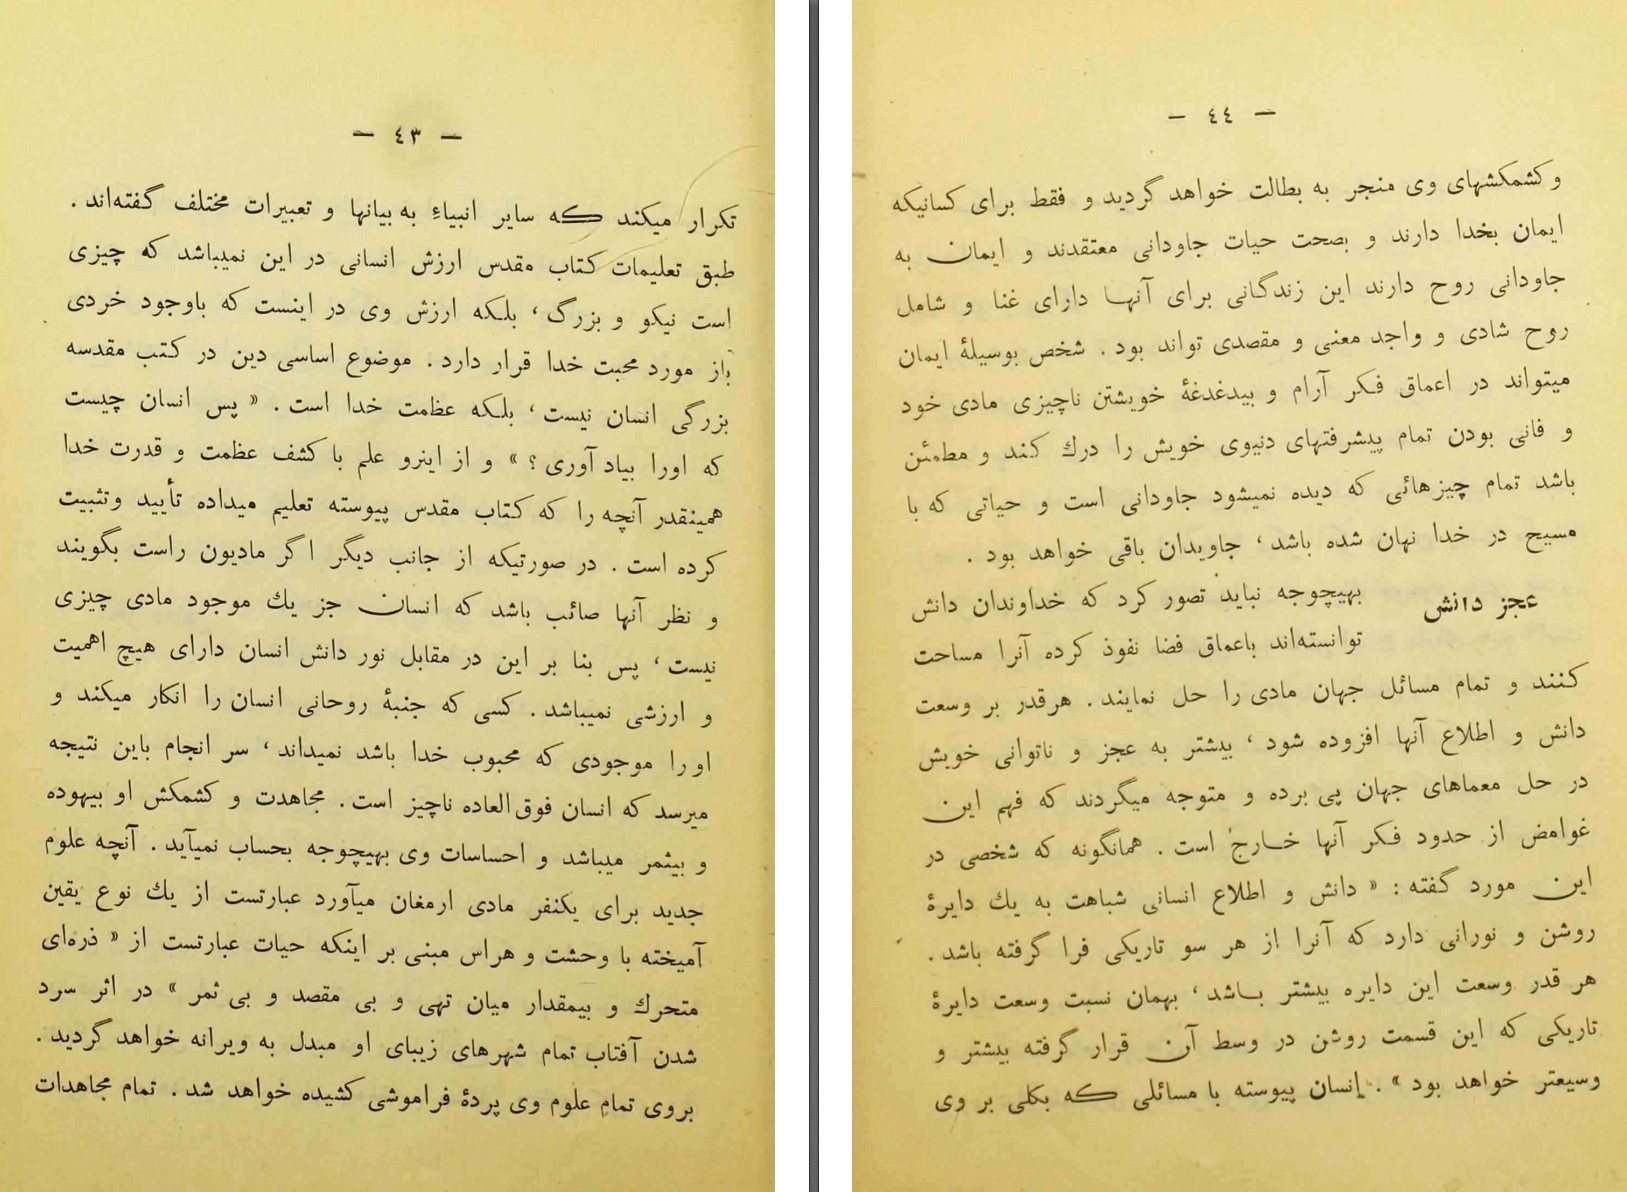 — ٤٣ —
تکرار میکند که سایر انبیاء به بیانها و تعبیرات مختلف گفته‌اند .
طبق تعلیمات کتاب مقدس ارزش انسانی در این نمیباشد که چیزی
است نیکو و بزرگ ، بلکه ارزش وی در اینست که باوجود خردی
باز مورد محبت خدا قرار دارد . موضوع اساسی دین در کتب مقدسه
بزرگی انسان نیست ، بلکه عظمت خدا است . « پس انسان چیست
که اورا بیاد آوری ؟ » و از اینرو علم با کشف عظمت و قدرت خدا
همینقدر آنچه را که کتاب مقدس پیوسته تعلیم میداده تأیید وتثبیت
کرده است . در صورتیکه از جانب دیگر اگر مادیون راست بگویند
و نظر آنها صائب باشد که انسان جز یك موجود مادی چیزی
نیست ، پس بنا بر این در مقابل نور دانش انسان دارای هیچ اهمیت
و ارزشی نمیباشد . کسی که جنبهٔ روحانی انسان را انکار میکند و
او را موجودی که محبوب خدا باشد نمیداند ، سر انجام باین نتیجه
میرسد که انسان فوق‌العاده ناچیز است . مجاهدت و کشمکش او بیهوده
و بیثمر میباشد و احساسات وی بهیچوجه بحساب نمیآید . آنچه علوم
جدید برای یکنفر مادی ارمغان میآورد عبارتست از یك نوع یقین
آمیخته با وحشت و هراس مبنی بر اینکه حیات عبارتست از « ذره‌ای
متحرك و بیمقدار میان تهی و بی مقصد و بی ثمر » در اثر سرد
شدن آفتاب تمام شهرهای زیبای او مبدل به ویرانه خواهد گردید .
بروی تمام علوم وی پردهٔ فراموشی کشیده خواهد شد . تمام مجاهدات
— ٤٤ —
و کشمکشهای وی منجر به بطالت خواهد گردید و فقط برای کسانیکه
ایمان بخدا دارند و بصحت حیات جاودانی معتقدند و ایمان به
جاودانی روح دارند این زندگانی برای آنها دارای غنا و شامل
روح شادی و واجد معنی و مقصدی تواند بود . شخص بوسیلهٔ ایمان
میتواند در اعماق فکر آرام و بیدغدغهٔ خویشتن ناچیزی مادی خود
و فانی بودن تمام پیشرفتهای دنیوی خویش را درك کند و مطمئن
باشد تمام چیزهائی که دیده نمیشود جاودانی است و حیاتی که با
مسیح در خدا نهان شده باشد ، جاویدان باقی خواهد بود .
عجز دانش بهیچوجه نباید تصور کرد که خداوندان دانش
توانسته‌اند باعماق فضا نفوذ کرده آنرا مساحت
کنند و تمام مسائل جهان مادی را حل نمایند . هرقدر بر وسعت
دانش و اطلاع آنها افزوده شود ، بیشتر به عجز و ناتوانی خویش
در حل معماهای جهان پی برده و متوجه میگردند که فهم این
غوامض از حدود فکر آنها خارج است . همانگونه که شخصی در
این مورد گفته : « دانش و اطلاع انسانی شباهت به یك دایرهٔ
روشن و نورانی دارد که آنرا از هر سو تاریکی فرا گرفته باشد .
هر قدر وسعت این دایره بیشتر باشد ، بهمان نسبت وسعت دایرهٔ
تاریکی که این قسمت روشن در وسط آن قرار گرفته بیشتر و
وسیعتر خواهد بود » . إنسان پیوسته با مسائلی که بکلی بر وی